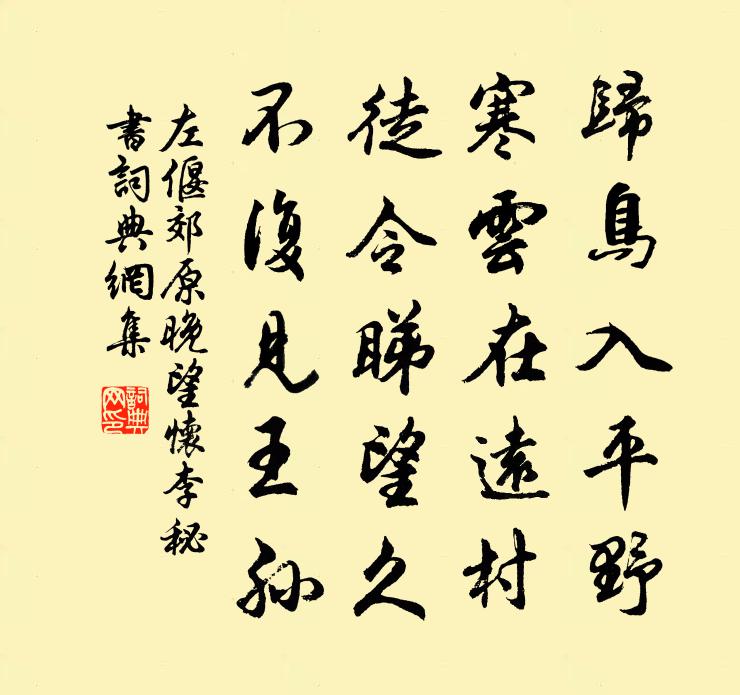 歸鳥入平野
寒雲在遠村
徒令睇望久
不復見王孫
左偃郊原晚望懷李秘
書詞典網集
詞典网印